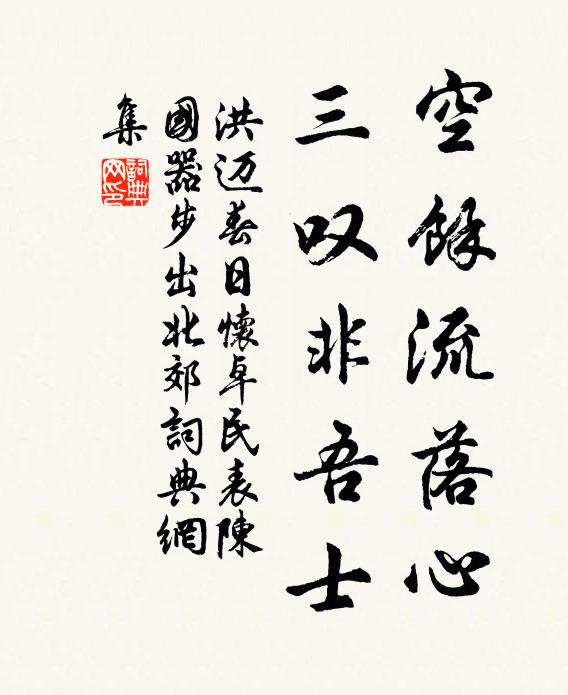 空餘流落心
三叹非吾士
洪迈春日懷卓民表陳
國器步出北郊詞典網
集
詞典网印